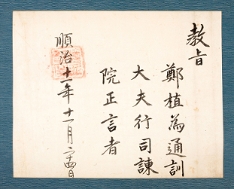 教旨
鄭植為通訓
大夫行司諫
院正言者
順治十一年十一月二十四日